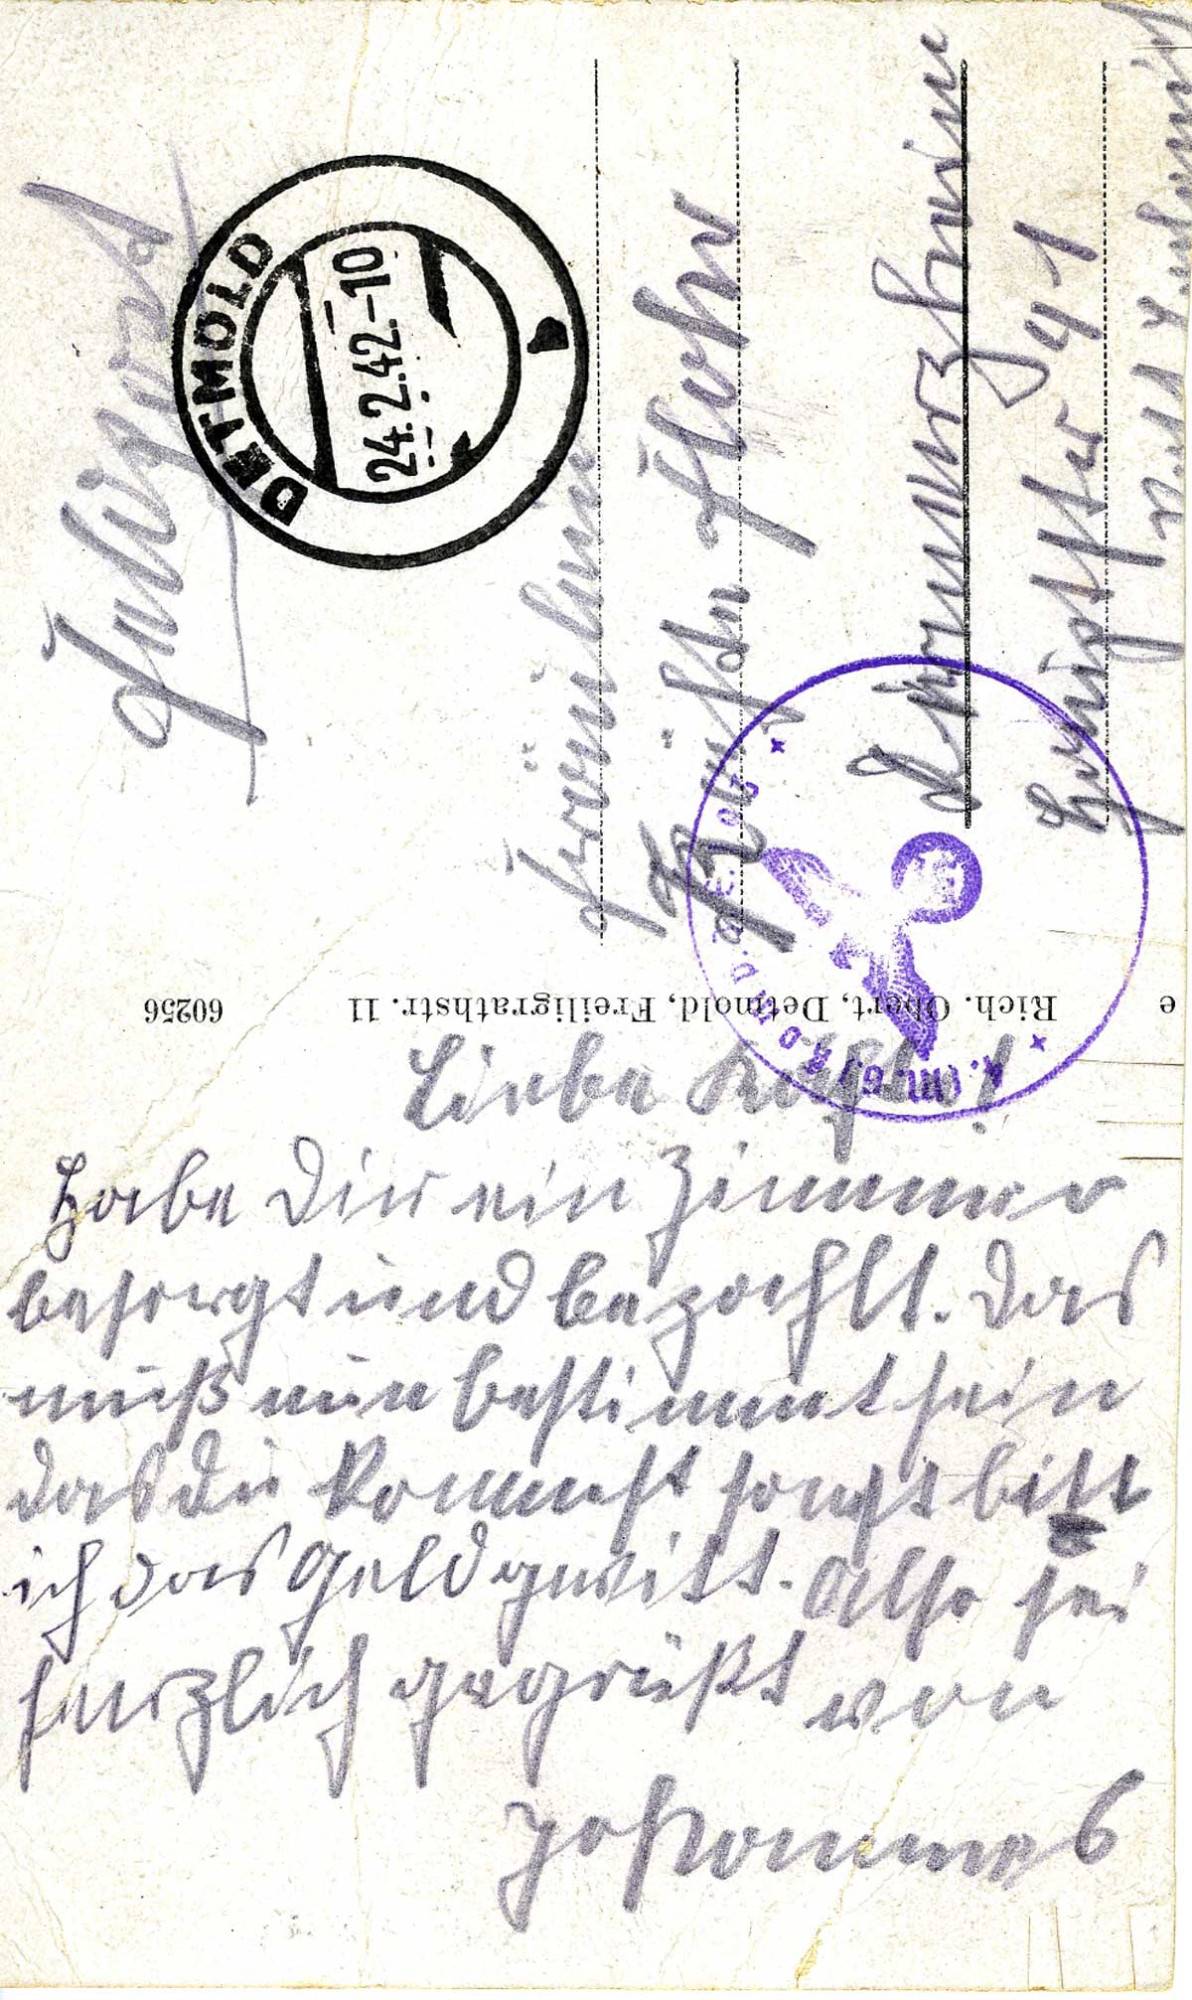 Feldpost
DETMOLD
24.2.42.-10
b
Fräulein
Käthe Hohn
Hauptstr 41
Rich. Obert, Detmold, Freiligrathstr. 11
60256
Liebe
Habe Dir ein Zimmer
besorgt und bezahlt. Das
muß nun bestimmt sein
das du kommst sonst bist
ich das Geld quitt. Also sei
herzlich gegrüßt von
Johannes